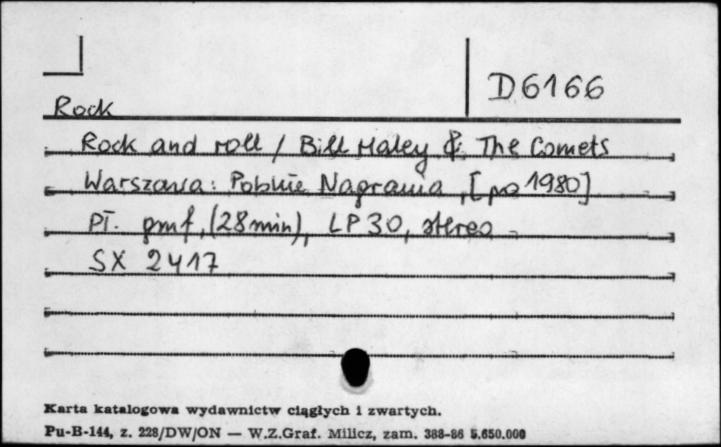 D6166
Rock
Rock and roll / Bill Haley & The Comets
Warszawa: Polskie Nagrania, [po 1980]
Pł. gmf, (28 min), LP 30, stereo
SX 2417
Karta katalogowa wydawnictw ciągłych i zwartych.
Pu-B-144, z. 228/DW/ON — W.Z.Graf. Milicz, zam. 388-86 5.650.000